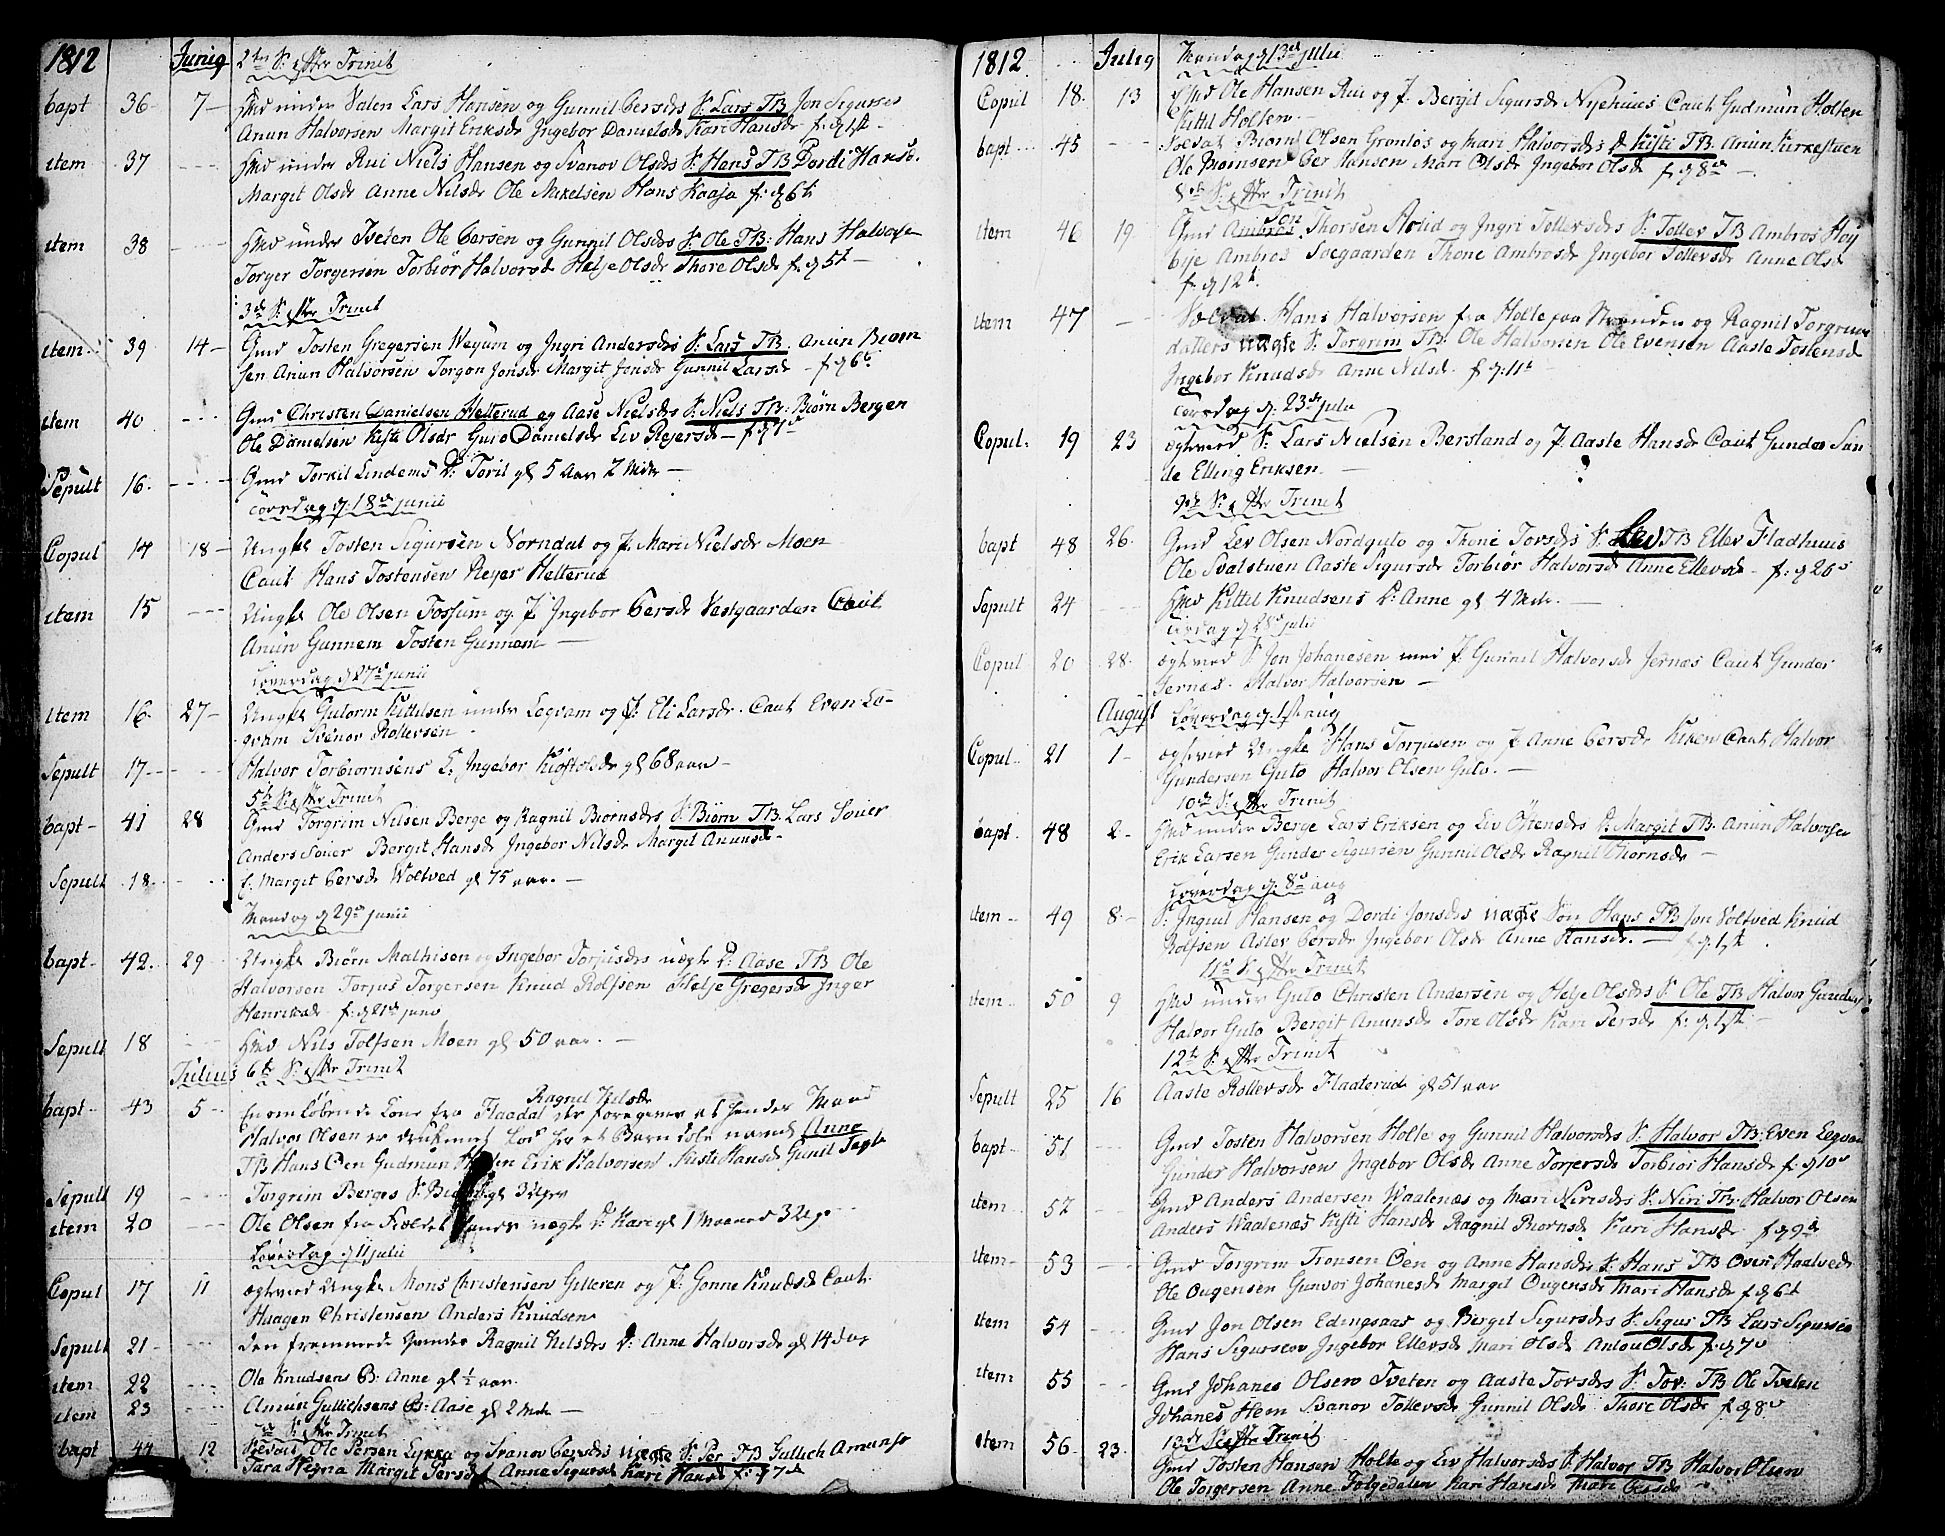 1812 Junig 2den S: efter Trinit
bapt 36 7 Hmd under Valen Lars Hansen og Gunnil Persdrs S: Lars TB Jon Sigurses
Anun Halvorsen Margit Eriksdr Ingebor Danielsdr Kari Hansdr f: d 1st
item 37 Hmd under Rui Niels Hansen og Svanov Olsdrs S: Hans TB Dordi Hansd.
Margit Olsdr Anne Nilsdr Ole Mikelsen Hans Kaasa f: d 6t
item 38 Hmd under Tveten Ole Persen og Gunnil Olsdrs S: Ole TB: Hans Halvorse
Torger Torgersen Torbiør Halvorsd Helje Olsdr Thore Olsdr f: d 5t
3de S: efter Trinit
item 39 14 Gmd Tosten Gregersen og Ingri Andersdrs S: Lars TB. Anun Biørn
sen Anun Halvorsen Torgon Jonsdr Margit Jonsdr Gunnil Larsdr f d 6t
item 40 Gmd Christen Danielsen Hetterud og Aase Nielsdrs S: Niels TB: Biørn Bergen
Ole Danielsen Kisti Olsdr Guro Danielsdr Liv Reiersdr f d 1st
Sepult 16. Gmd Torkil Lindems D: Toril gl 5 Aar 2 Mdr
Torsdag d: 18de junii
Copul 14 18 Ungk: Tosten Sigursen Norndal og P. Mari Nielsdr Moen
Caut Hans Tostensen Reyer Hetterud
item 15 Ungk: Ole Olsen Fossum og P Ingebor Persdr Vestgaarden Caut
Anun Gunnem Tosten Gunnem
Løverdag d 27de junii
item 16 27 Ungk: Gutorm Kittilsen under Legvam og P: Eli Larsdr. Caut Even Le-
gvam Svenor Rollevsen
Sepult 17 Halvor Torbiørnsens E. Ingebor Kiøstolsdr gl 68 aar
5te S: efter Trinit
bapt 41 28 Gmd Torgrim Nilsen Berge og Ragnil Biørnsdrs S: Biørn TB. Lars Soner
Anders Soner Bergit Hansdr Ingebor Nilsdr Margit Anunsdr
Sepult 18. E. Margit Persdr Woltved gl 75 aar.
Mandag d 29de junii
bapt 42. 29 Ungk: Biørn Mathisen og Ingebor Torjusdrs uægte D: Aase TB Ole
Halvorsen Torjus Torgersen Knud Rolfsen Helje Gregersdr Inger
Henriksdr f: d 21de juni
Sepult 18 Hmd Nils Tolfsen Moen gl 50 aar.
Julius 6te S: efter Trinit
Ragnil Kilsdr
bapt 43 5 En omløbende Kone fra Flaadal der foregiver at hendes Mand
Halvor Olsen er druknet lod sit Barn døbe navnl Anne
TB Hans Oen Gudmun Erik Halvorsen Kisti Hansdr Gunil
Sepult 19 Torgrim Berges S: gl 3 uger
item 20 Ole Olsen fra uægte D: Kari gl 1 Maaned 3 Uge
Løverdag d 11 julii
Copul 17 11 ægtviet Ungk: Mons Christensen Gilleren og P: Gonne Knudsdr Caut.
Haagen Christensen Anders Knudsen
Sepult 21 Den fremmede Qvindes Ragnil Kilsdrs D: Anne Halvorsdr gl 14 dag
item 22 Ole Knudsens B: Anne gl ½ aar.
item 23 Amun Gullichsens B: Aase gl 2 Mdr
7de S: efter Trinit
bapt 44 12 Soldat Ole Persen Lykka og Svanov Persdrs uægte S: Per TB Gullich Amunse
Tara Margit Persdr Anne Sigursdr Kari Hansdr f: d 7de
1812 Julig Mandag d 13de julii
Copul 18. 13 Hmd Ole Hansen Rui og P. Bergit Sigursdr Nyehuus Caut Gudmun Holten
Kittil Holten
bapt 45 Soldat Biørn Olsen Grønlos og Mari Halvorsdrs D Kisti TB Anun Kirkestuen
Ole Biørnsen Per Hansen Mari Olsdr Ingebor Olsdr f d 8de
8de S: efter Trinit
Jon
item 46 19 Gmd Ambros Thorsen Aslid og Ingri Tollevsdrs S: Tollev TB Ambros Høy
bye Ambros Svegaarden Thone Ambrosdr Ingebor Tollevsdr Anne Olsd
f: d 12t.
item 47 Soldat Hans Halvorsen fra Holte paa Stranden og Ragnil Torgrims
datters uægte S: Torgrim TB. Ole Halvorsen Ole Evensen Aaste Tostensd
Ingebor Knudsdr Anne Nilsdr f d: 11t
Torsdag d: 23de julii
Copul. 19 23 ægtviet S: Lars Nielsen Bersland og P. Aaste Hansdr Caut Gunder San
de Elling Eriksen
9de S: efter Trinit
bapt 48 26. Gmd Lev Olsen Nordguto og Thone Torsdrs S: Lev TB Ellev Fladhuus
Ole Svalstuen Aaste Sigursdr Torbiør Halvorsd Anne Ellevsdr f: d 20
Sepult 24 Hmd Kittil Knudsens D: Anne gl 4 Mdr.
Tirsdag d 28de julii
Copul 20 28. ægtviet S: Jon Johanesen med P. Gunnil Halvorsdr Jernæs Caut Gunder
Jernæs. Halvor Halvorsen
August Løverdag d. 1st aug
Copul 21 1 ægtviet Ungke Hans Torjusen og P Anne Persdr Kiken Caut Halvor
Gundersen Guto Halvor Olsen Guto.
10de S: efter Trinit
bapt. 48 2 Hmd under Berge Lars Eriksen og Liv Østensdrs D: Margit TB. Anun Halvorse
Erik Larsen Gunder Sigursen Gunnil Olsdr Ragnil Biørnsdr
Løverdag d. 8de aug
item 49 8 S. Ingul Hansen og Dordi Jonsdrs uægte Søn Hans TB Jon Voltved Knud
Rolfsen Aslev Persdr Ingebor Olsdr Anne Hansdr. f d 1st
11te S: efter Trinit
item 50 9 Hmd under Guto Christen Andersen og Helje Olsdrs S. Ole TB Halvor Gunders
Halvor Guto Bergit Anunsdr Tore Olsdr Kari Persdr f: d 1st.
12te S: efter Trinit
Sepult 25 16 Aaste Rollevsdr Flaaterud gl 51 aar
bapt 51 Gmd Tosten Halvorsen Holte og Gunnil Halvorsdrs S. Halvor TB: Even Legvam
Gunder Halvorsen Ingebor Olsdr Anne Torjersdr Torbiør Hansdr f: d 10
item 52 Gmd Anders Andersen Waalenæs og Mari Nirisdrs S. Niri TB. Halvor Olsen
Anders Waalenæs Kisti Hansdr Ragnil Biørnsdr Kari Hansdr f d 9de
item 53 Gmd Torgrim Tronsen Oen og Anne Hansdrs S: Hans TB Oven Haatvedt
Ole Ougensen Gunvor Johanesdr Margit Ougensdr Mari Hansdr f d 6t
item 54 Gmd Jon Olsen Edingsaas og Bergit Sigursdrs S: Sigur TB Lars Sigursen
Hans Sigursen Ingebor Ellevsdr Mari Olsdr Anlou Olsdr f: d 7
item 55 Gmd Johanes Olsen Tveten og Aaste Torsdrs S: Tov. TB Ole Tveten
Johanes Hem Svanov Tollevsdr Gunnil Olsdr Thore Olsdr f d 8
13de S: efter Trinit
item 56. 23. Gmd Tosten Hansen Holte og Liv Halvorsdrs S. Halvor TB Halvor Olsen
Ole Torgersen Anne Folgedalen Kari Hansdr Mari Persdr